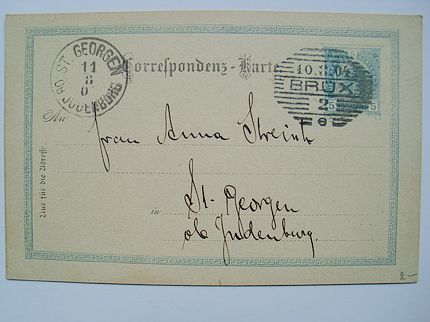 ST. GEORGEN
OB JUDENBURG
11
8
0
Correspondenz-Karte
10.8.04
BRÜX
2
e
5
5
An
Frau Anna Streintz
Nur für die Adresse.
in
St. Georgen
ob Judenburg.
2-